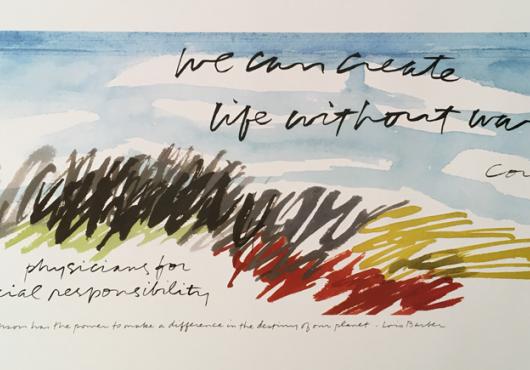 we can create
life without wa
Co
physicians for
cial responsibility
erson has the power to make a difference in the destiny of our planet - Lois Barber